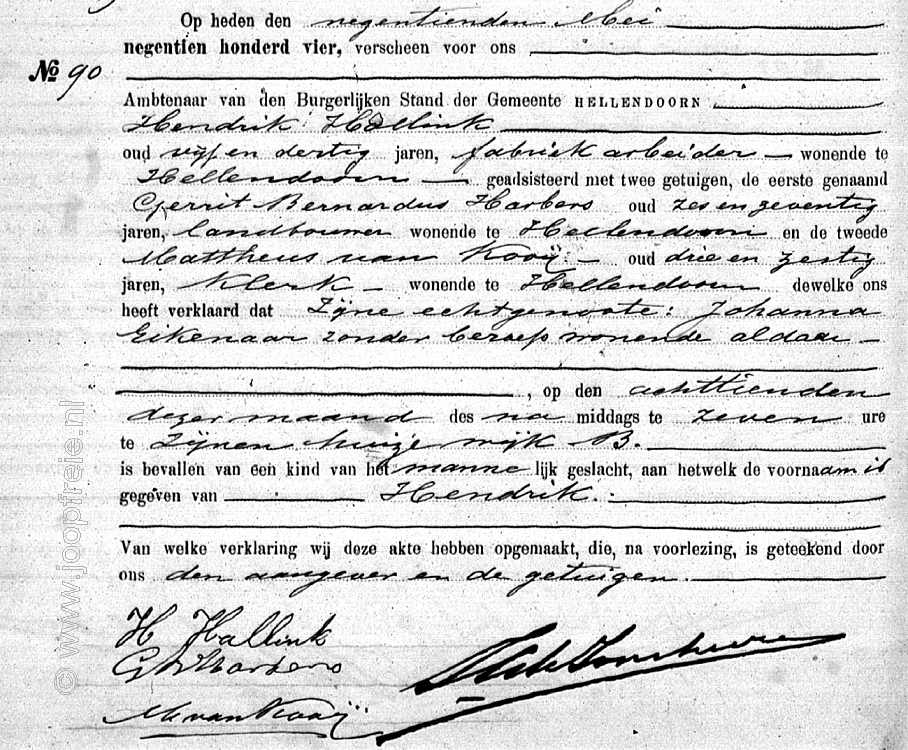 Op heden den negentienden Mei
negentien honderd vier, verscheen voor ons
No 90
Ambtenaar van den Burgerlijken Stand der Gemeente HELLENDOORN
Hendrik Hallink
oud vijf en dertig jaren, fabriek arbeider – wonende te
Hellendoorn – geadsisteerd met twee getuigen, de eerste genaamd
Gerrit Bernardus Harbers oud zes en zeventig
jaren, landbouwer wonende te Hellendoorn en de tweede
Mattheus van Kooij – oud drie en zestig
jaren, Klerk – wonende te Hellendoorn dewelke ons
heeft verklaard dat Zijne echtgenoote: Johanna
Eikenaar zonder beroep wonende aldaar –
, op den achttienden
dezer maand des na middags te zeven ure
te Zijnen huize wijk B.
is bevallen van een kind van het manne lijk geslacht, aan hetwelk de voornaam is
gegeven van Hendrik.
Van welke verklaring wij deze akte hebben opgemaakt, die, na voorlezing, is geteekend door
ons den aangever en de getuigen.
H Hallink
G B Harbers
M van Kooij
© www.joopfreje.nl